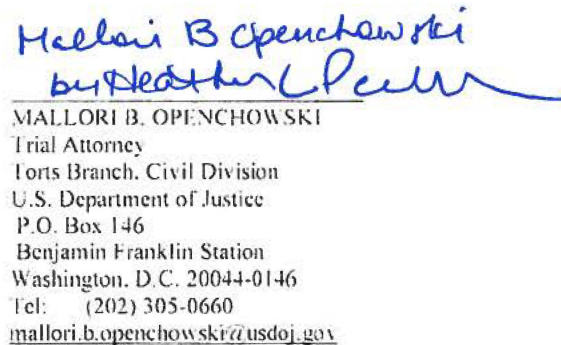 Mallori B Openchowski
by Heather L
MALLORI B. OPENCHOWSKI
Trial Attorney
Torts Branch, Civil Division
U.S. Department of Justice
P.O. Box 146
Benjamin Franklin Station
Washington, D.C. 20044-0146
Tel: (202) 305-0660
mallori.b.openchowski@usdoj.gov